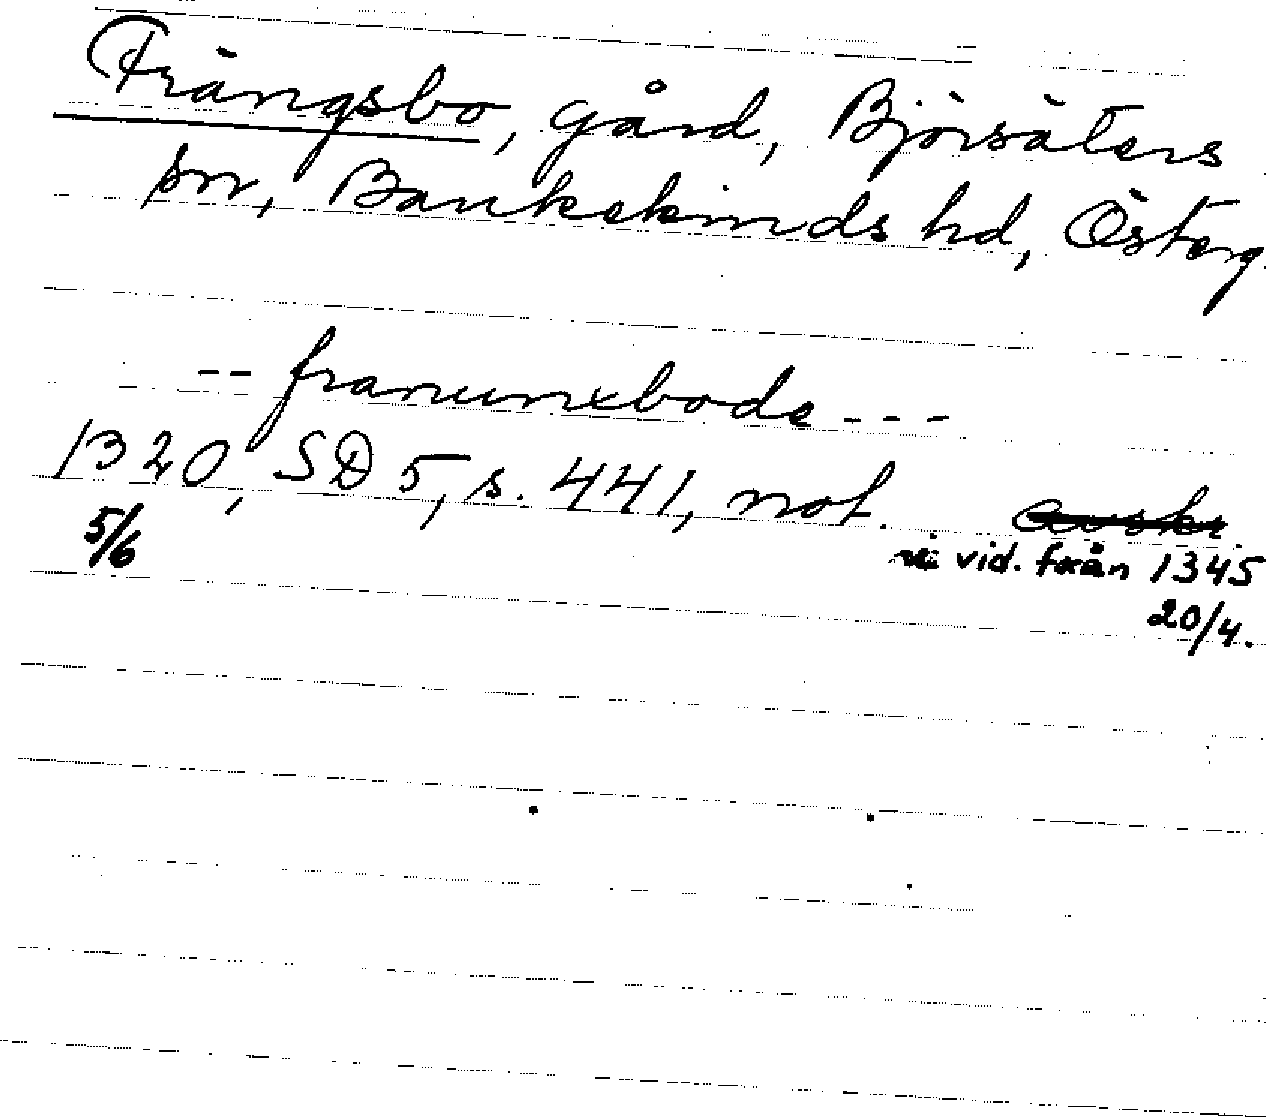 Trängsbo, gård, Björsäters
sn, Bankekinds hd, Österg.
-- franumxbode ---
1320, SD 5, s. 441, not. avskr.
5/6
i vid. från 1345
20/4.